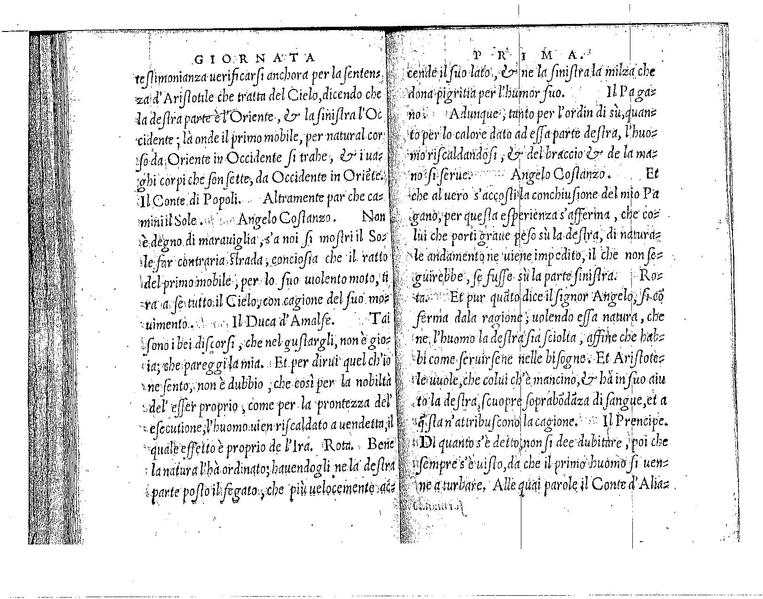 GIORNATA
testimonianza uerificarsi anchora per la senten⸗
za d'Aristotile che tratta del Cielo, dicendo che
la destra parte è l'Oriente, & la sinistra l'Oc
cidente; là onde il primo mobile, per natural cor
so da Oriente in Occidente si trahe, & i ua⸗
ghi corpi che son sette, da Occidente in Oriẽte.
Il Conte di Popoli. Altramente par che ca⸗
mini il Sole. Angelo Costanzo. Non
è degno di marauiglia, s'a noi si mostri il So⸗
le far contraria strada, conciosia che il ratto
del primo mobile, per lo suo uiolento moto, ti
ra a se tutto il Cielo, con cagione del suo mo⸗
uimento. Il Duca d'Amalfe. Tai
sono i bei discorsi, che nel gustargli, non è gio⸗
ia, che pareggi la mia. Et per dirui quel ch'io
ne sento, non è dubbio, che così per la nobiltà
del' esser proprio, come per la prontezza del'
esecutione, l'huomo uien riscaldato a uendetta, il
quale effetto è proprio de l'Ira. Rota. Bene
la natura l'hà ordinato; hauendogli ne la destra
parte posto il fegato, che più uelocemente ac⸗
PRIMA.
cende il suo lato, & ne la sinistra la milza che
dona pigritia per l'humor suo. Il Paga⸗
no. Adunque, tanto per l'ordin di sù, quan⸗
to per lo calore dato ad essa parte destra, l'huo⸗
mo riscaldandosi, & del braccio & de la ma⸗
no si serue. Angelo Costanzo. Et
che al uero s'accosti la conchiusione del mio Pa
gano, per questa esperienza s'afferma, che co⸗
lui che porti graue peso sù la destra, di natura⸗
le andamento ne uiene impedito, il che non se⸗
guirebbe, se fusse sù la parte sinistra. Ro⸗
ta. Et pur quãto dice il signor Angelo, si cõ
ferma dala ragione; uolendo essa natura, che
ne l'huomo la destra sia sciolta, affine che hab⸗
bi come seruirsene nelle bisogne. Et Aristote⸗
le uuole, che colui ch'è mancino, & hà in suo aiu
to la destra, scuopre soprabõdãza di sangue, et a
q̃sta n'attribuscono la cagione. Il Prencipe.
Di quanto s'è detto, non si dee dubitare, poi che
sempre s'è uisto, da che il primo huomo si uen⸗
ne a turbare. Alle quai parole, il Conte d'Alia⸗